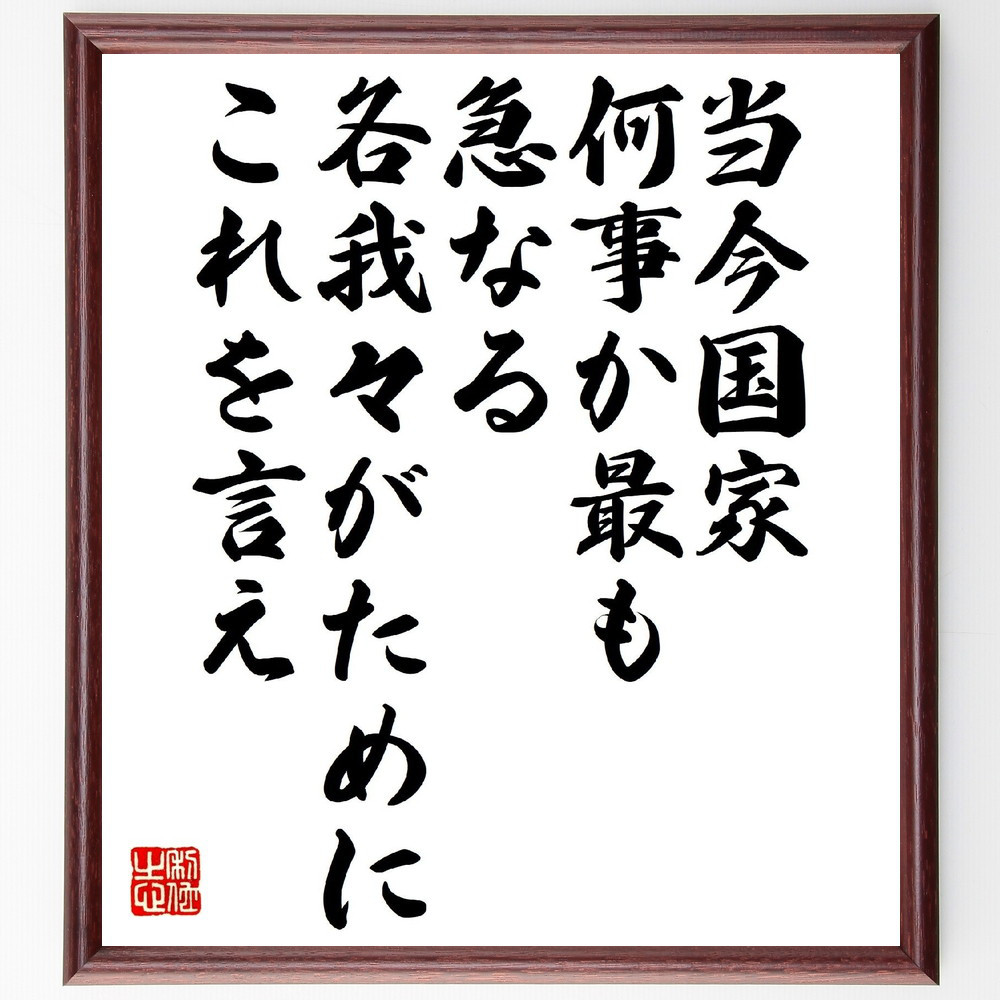 当今国家
何事か最も
急なる
各我々がために
これを言え